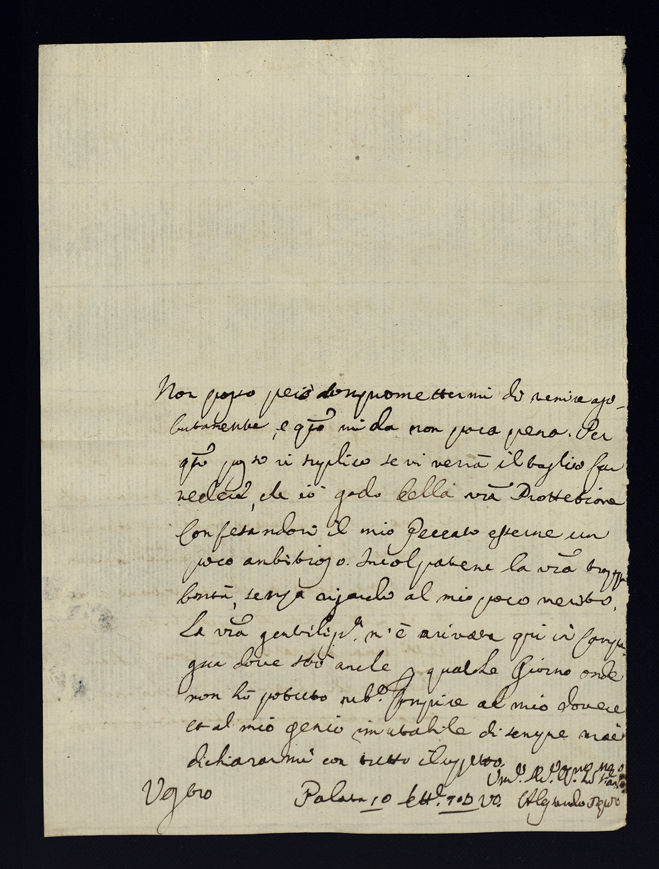 Non posso però compromettermi di venire
e qsto mi da non poca pena. Per
qsto poso vi suplico se vi verrà il taglio far
vedere, che io godo della vra Prottetione
Confesandovi il mio Peccato esserne un
poco ambitioso. Incolpatene la vra troppa
bontà, senza riguardo al mio poco merito.
La vra gentiliss.a m'è arivata qui in Campa
gna dove stò anche qualche Giorno onde
non hò potuto sub.o Conpire al mio dovere
et al mio genio imutabile di sempre mai
dichiararmi con tutto il rispetto
Palata 10 Sett.e